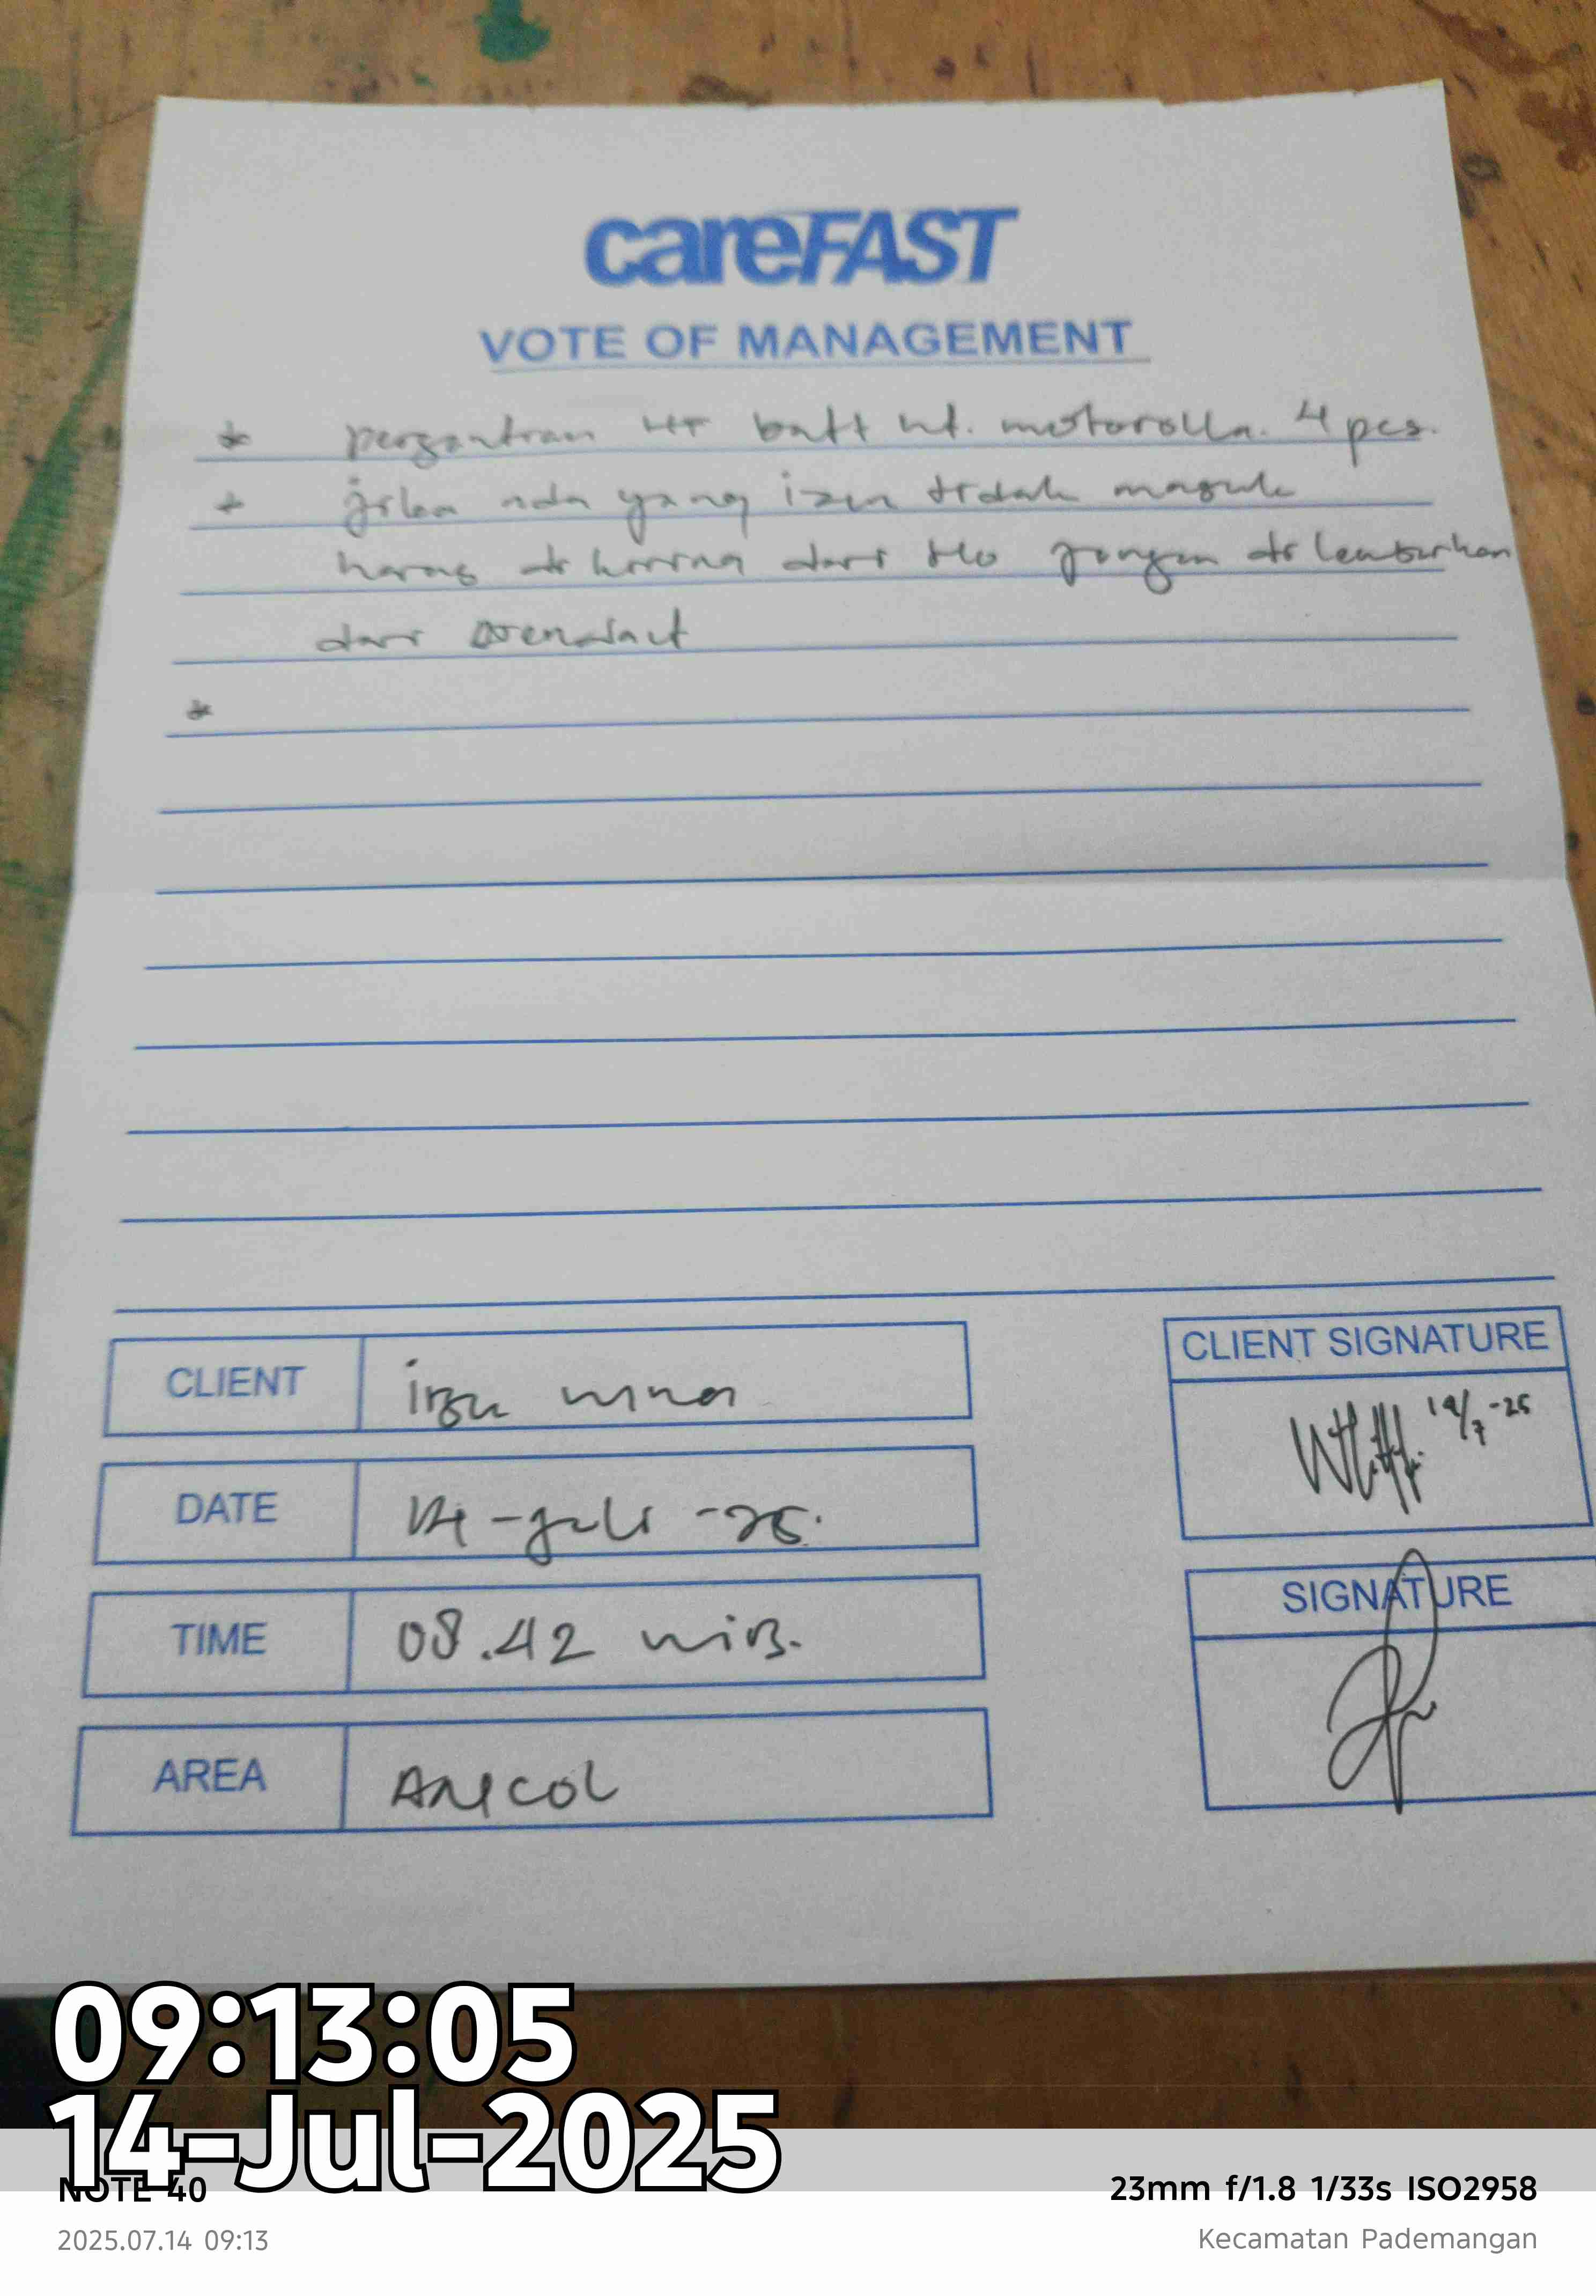 careFAST
VOTE OF MANAGEMENT
* pergantian HT batt ht. motorolla. 4 pcs.
* jika ada yang izin tidak masuk
harus di kirim dari Ho jangan di lemburkan
dari
*
CLIENT ibu nina
DATE 14-juli-25.
TIME 08.42 WIB.
AREA ANCOL
CLIENT SIGNATURE
14/7-25
SIGNATURE
09:13:05
14-Jul-2025
NOTE 40
23mm f/1.8 1/33s ISO2958
2025.07.14 09:13
Kecamatan Pademangan